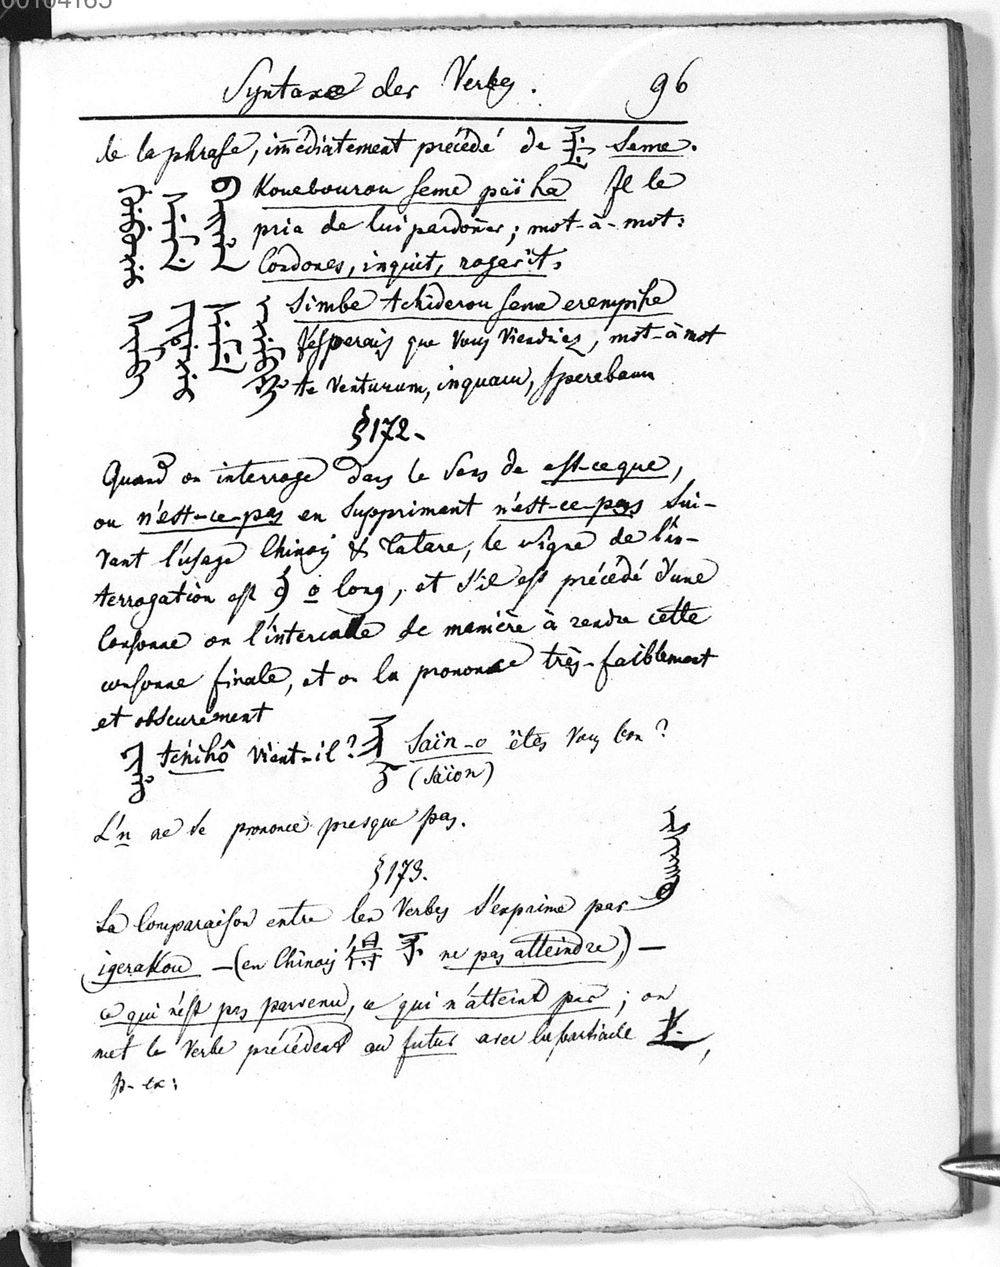 00104165
Syntaxe des Verbes. 96
de la phrase, immédiatement précédé de ᠰᡝᠮᡝ seme.
Kouebourou seme païha Il le
pria de lui pardoñer; mot-à-mot:
Condones, inquit, rogavit,
Simbe tchiderou seme erempihe
J'esperais que vous viendriez, mot-à mot
te venturum, inquam, sperabam
§172.
Quand on interroge dans le sens de est-ce que,
ou n'est-ce-pas en supprimant n'est-ce-pas sui-
vant l'usage Chinois & Tatare, le signe de l'in-
terrogation est o long, et s'il est précédé d'une
Consonne on l'intercalle de manière à rendre cette
consonne finale, et on la prononce très-faiblement
et obscurément
tchihô vient-il? Saïn-o êtes vous bon?
(Saïon)
L'n ne se prononce presque pas.
§173.
La Comparaison entre les Verbes s'exprime par
igerakou — (en Chinois 得 不 ne pas atteindre) —
ce qui n'est pas parvenu, ce qui n'atteint pas; on
met le Verbe précédent au futur avec la particule ,
p. ex: